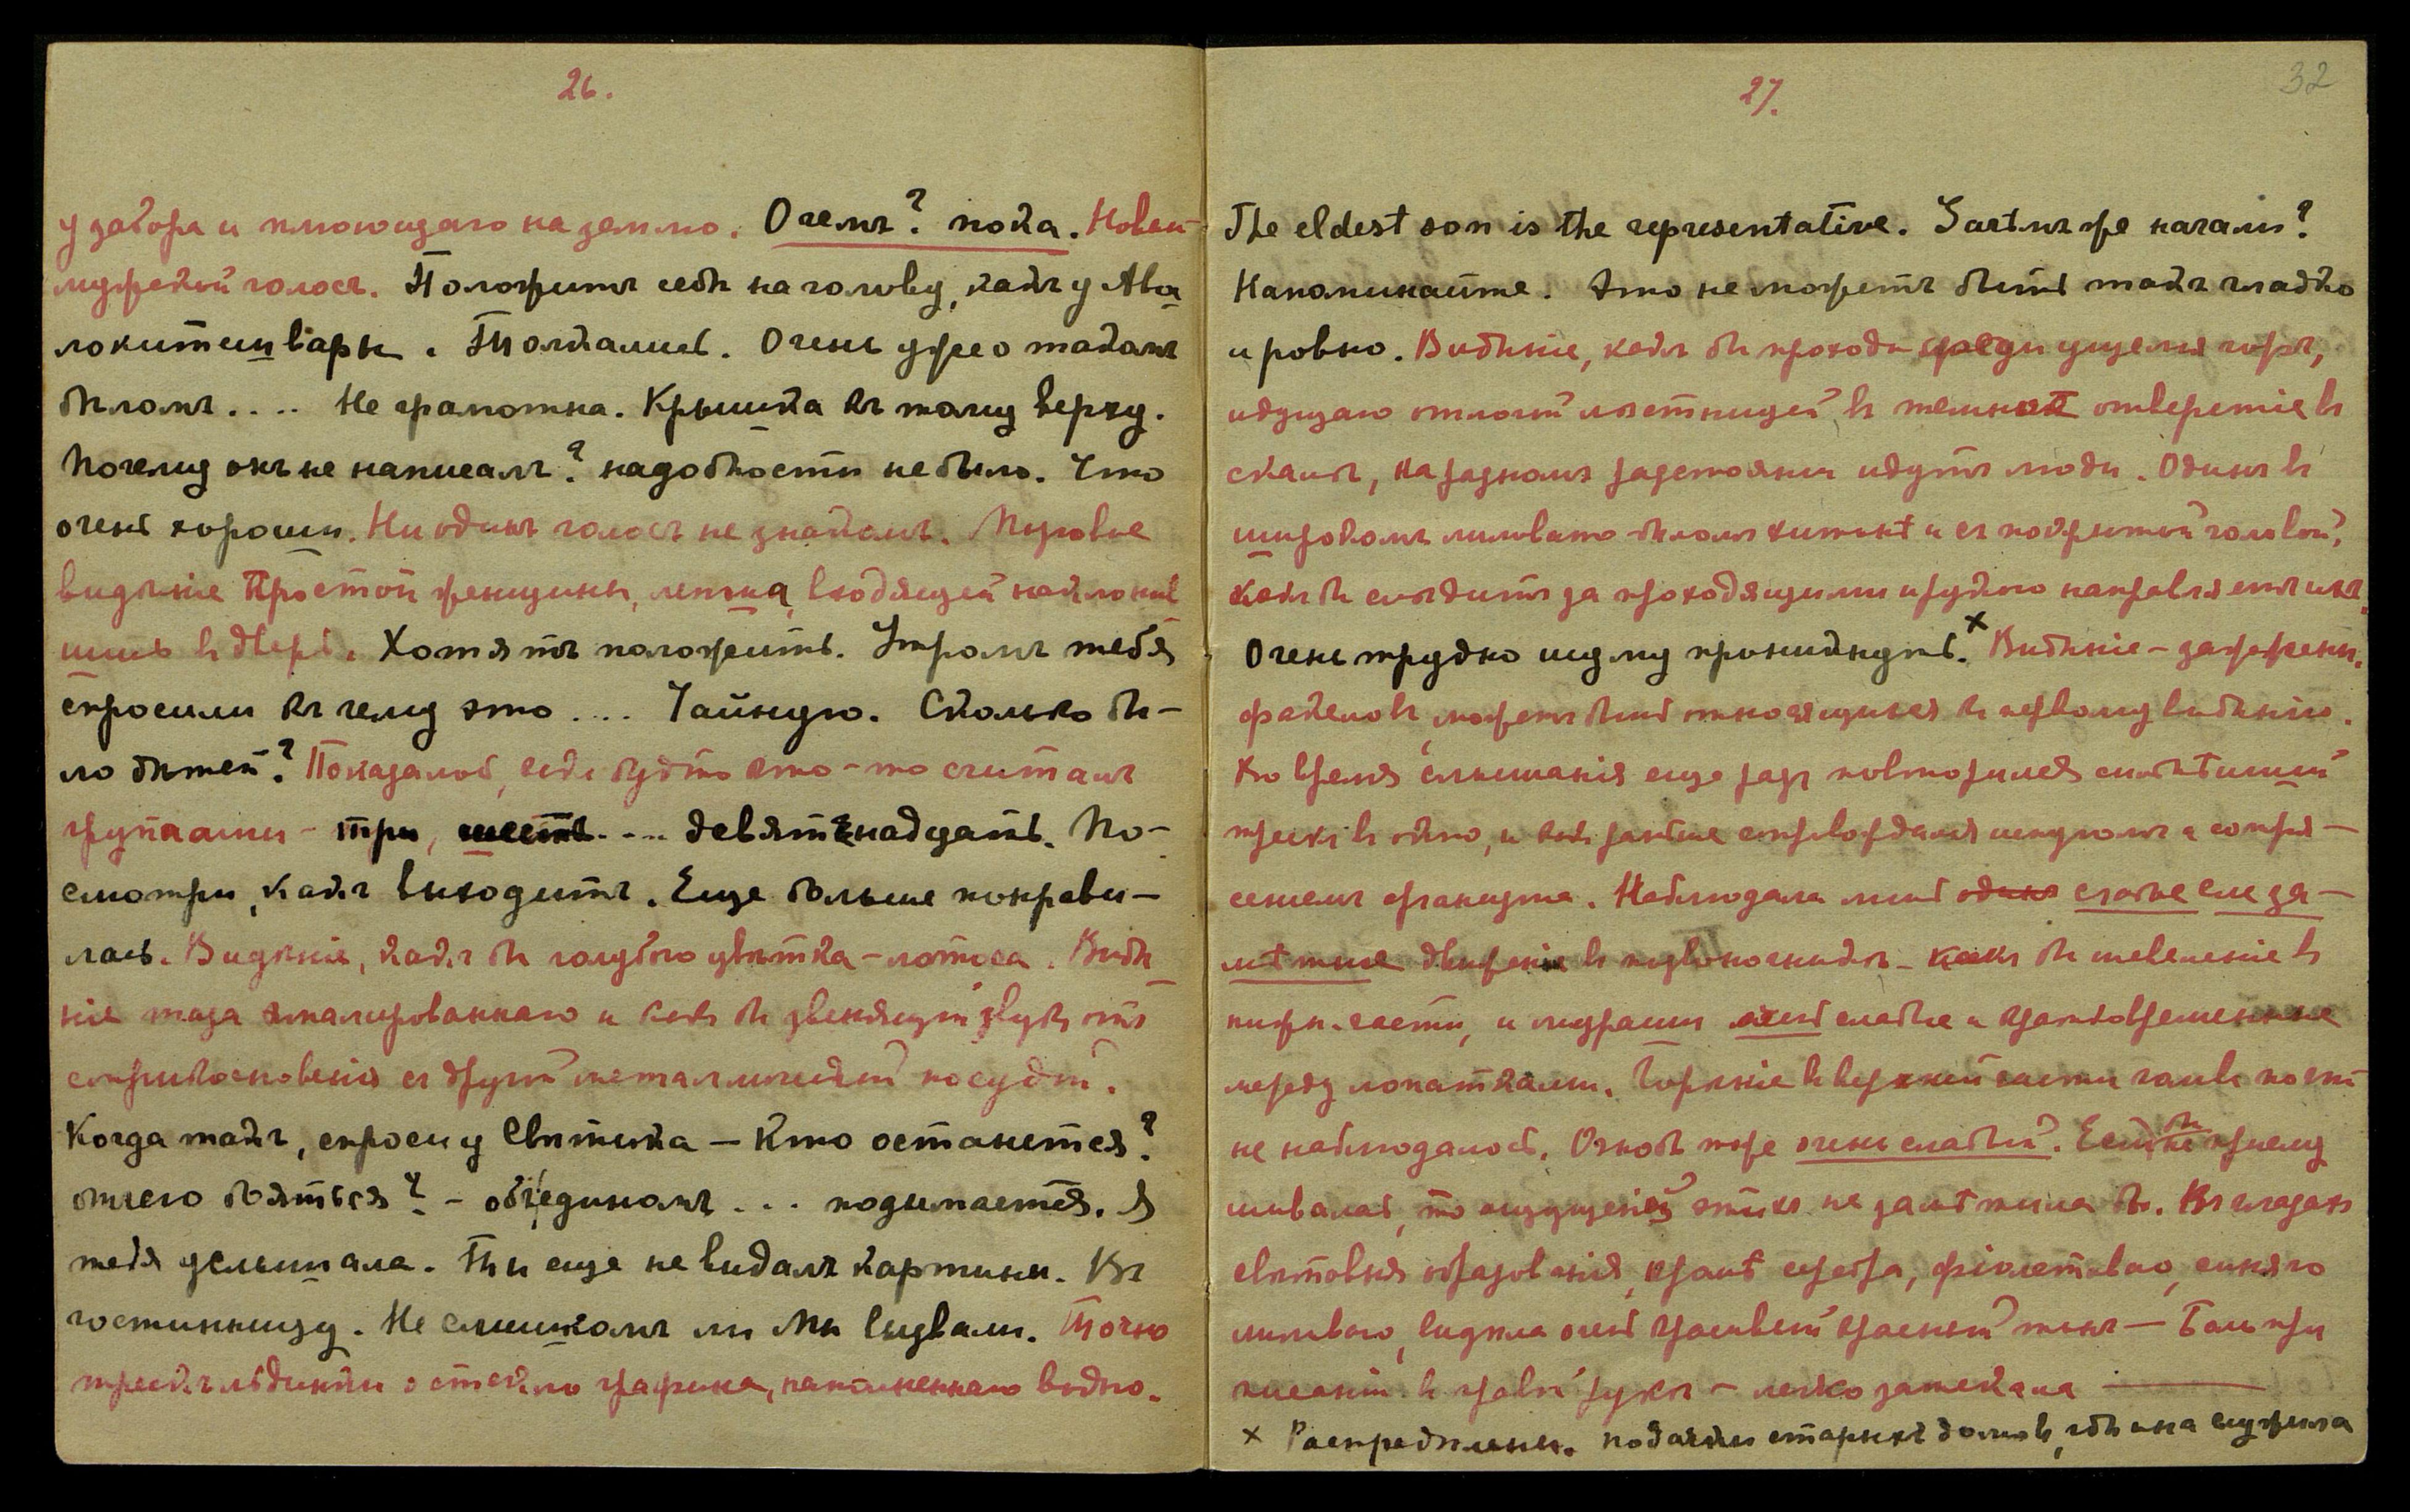 26.
у забора и плюющаго на землю. О чемъ? пока. Новый
мужской голосъ. Положитъ себѣ на голову, какъ у Ава
локитешвары. Толкались. Очень уже о такомъ
бѣломъ .... Не грамотна. Крышка къ тому верху.
Почему онъ не написалъ? надобности не было. Что
очень хороши. Ни одинъ голосъ не знакомъ. Первое
видѣніе простой женщины, входящей
въ дверь. Хотятъ положить. Утромъ тебя
спросили къ чему это .... Чайную. Сколько бы-
ло дѣтей? Показалось, какъ будто кто-то считалъ
группами - три, шесть .... девятнадцать. По-
смотри, какъ выходитъ. Еще больше понрави-
лась. Видѣніе, какъ бы голубого цвѣтка-лотоса. Видѣ
ніе таза эмалированнаго и какъ бы звенящій звукъ отъ
соприкосновенія съ другой металлической посудой.
Когда такъ, спроси у Святика — Кто останется?
отчего бояться? - объединомъ ... подымается. Я
тебя услышала. Ты еще не видалъ картины. Въ
гостинницу. Не слишкомъ ли мы вызвали. Точно
трескъ льдинки о стекло графина, наполненнаго водою.
27.
32
The eldest son is the representative. Зачѣмъ же начали?
Напоминайте. Это не можетъ быть такъ гладко
и ровно. Видѣніе, какъ бы прохода среди ущелья горъ,
идущаго отлогой лѣстницей въ темное отверстіе въ
скалѣ, на разномъ разстояніи идутъ люди. Одинъ въ
широкомъ лиловато-бѣломъ хитонѣ и съ покрытой головой,
какъ бы слѣдитъ за проходящими и рукою направляетъ ихъ.
Очень трудно всему проникнуть.× Видѣніе - зажжен.
факеловъ, можетъ быть относящихся къ первому видѣнію.
Во время слышанія еще разъ повторился сильнѣйшій
трескъ въ окно, и какъ раньше сопровождался испугомъ и сотря-
сеніемъ организма. Наблюдала лишь одно слабое еле за-
мѣтное движеніе въ позвоночникѣ - какъ бы шевеленіе въ
нижн. части, и лишь слабые и кратковременные
между лопатками. Горѣніе въ верхней части головы почти
не наблюдалось. Ознобъ тоже очень слабый. Если бы не прислу
шивалась, то ощущеній этихъ не замѣтила бы. Въ глазахъ
свѣтовыя образованія, кромѣ серебра, фіолетоваго, синяго
лиловаго, видѣла очень красивый красный тонъ — Боль при
писаніи въ правой рукѣ - легко затекала ———
× Распредѣлены. подачки старыхъ домовъ, гдѣ она служила